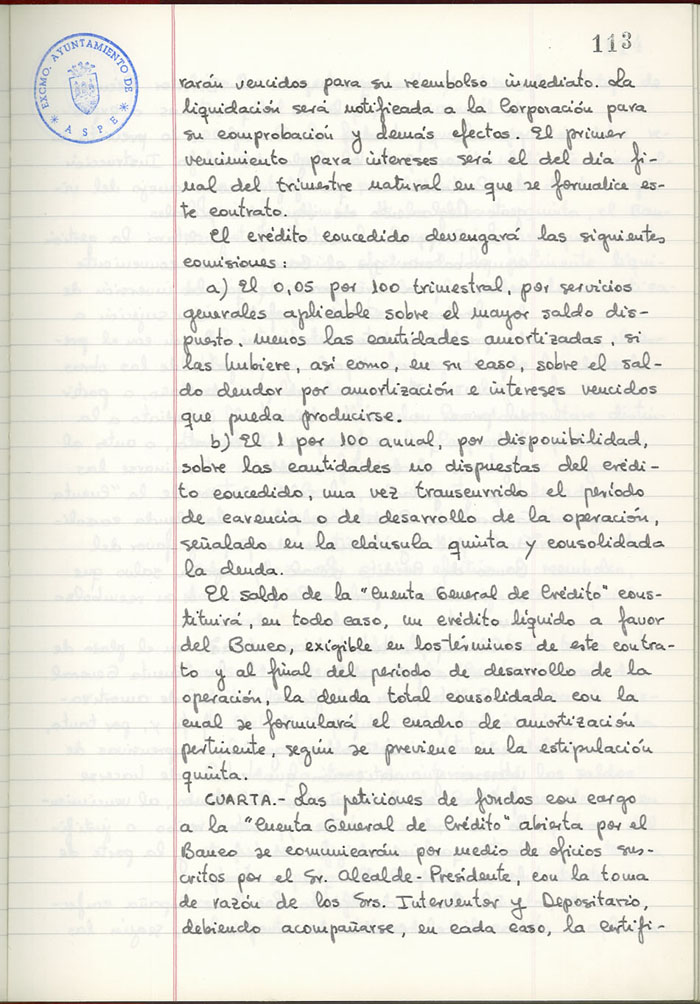 113
EXCMO. AYUNTAMIENTO DE
* ASPE *
rarán vencidos para su reembolso inmediato. La
liquidación será notificada a la Corporación para
su comprobación y demás efectos. El primer
vencimiento para intereses será el del día fi-
nal del trimestre natural en que se formalice es-
te contrato.
El crédito concedido devengará las siguientes
comisiones:
a) El 0,05 por 100 trimestral, por servicios
generales aplicable sobre el mayor saldo dis-
puesto, menos las cantidades amortizadas, si
las hubiere, así como, en su caso, sobre el sal-
do deudor por amortización e intereses vencidos
que pueda producirse.
b) El 1 por 100 anual, por disponibilidad,
sobre las cantidades no dispuestas del crédi-
to concedido, una vez transcurrido el período
de carencia o de desarrollo de la operación,
señalado en la cláusula quinta y consolidada
la deuda.
El saldo de la "Cuenta General de Crédito" cons-
tituirá, en todo caso, un crédito líquido a favor
del Banco, exigible en los términos de este contra-
to y al final del período de desarrollo de la
operación, la deuda total consolidada con la
cual se formulará el cuadro de amortización
pertinente, según se previene en la estipulación
quinta.
CUARTA.- Las peticiones de fondos con cargo
a la "Cuenta General de Crédito" abierta por el
Banco se comunicarán por medio de oficios sus-
critos por el Sr. Alcalde-Presidente, con la toma
de razón de los Srs. Interventor y Depositario,
debiendo acompañarse, en cada caso, la certifi-